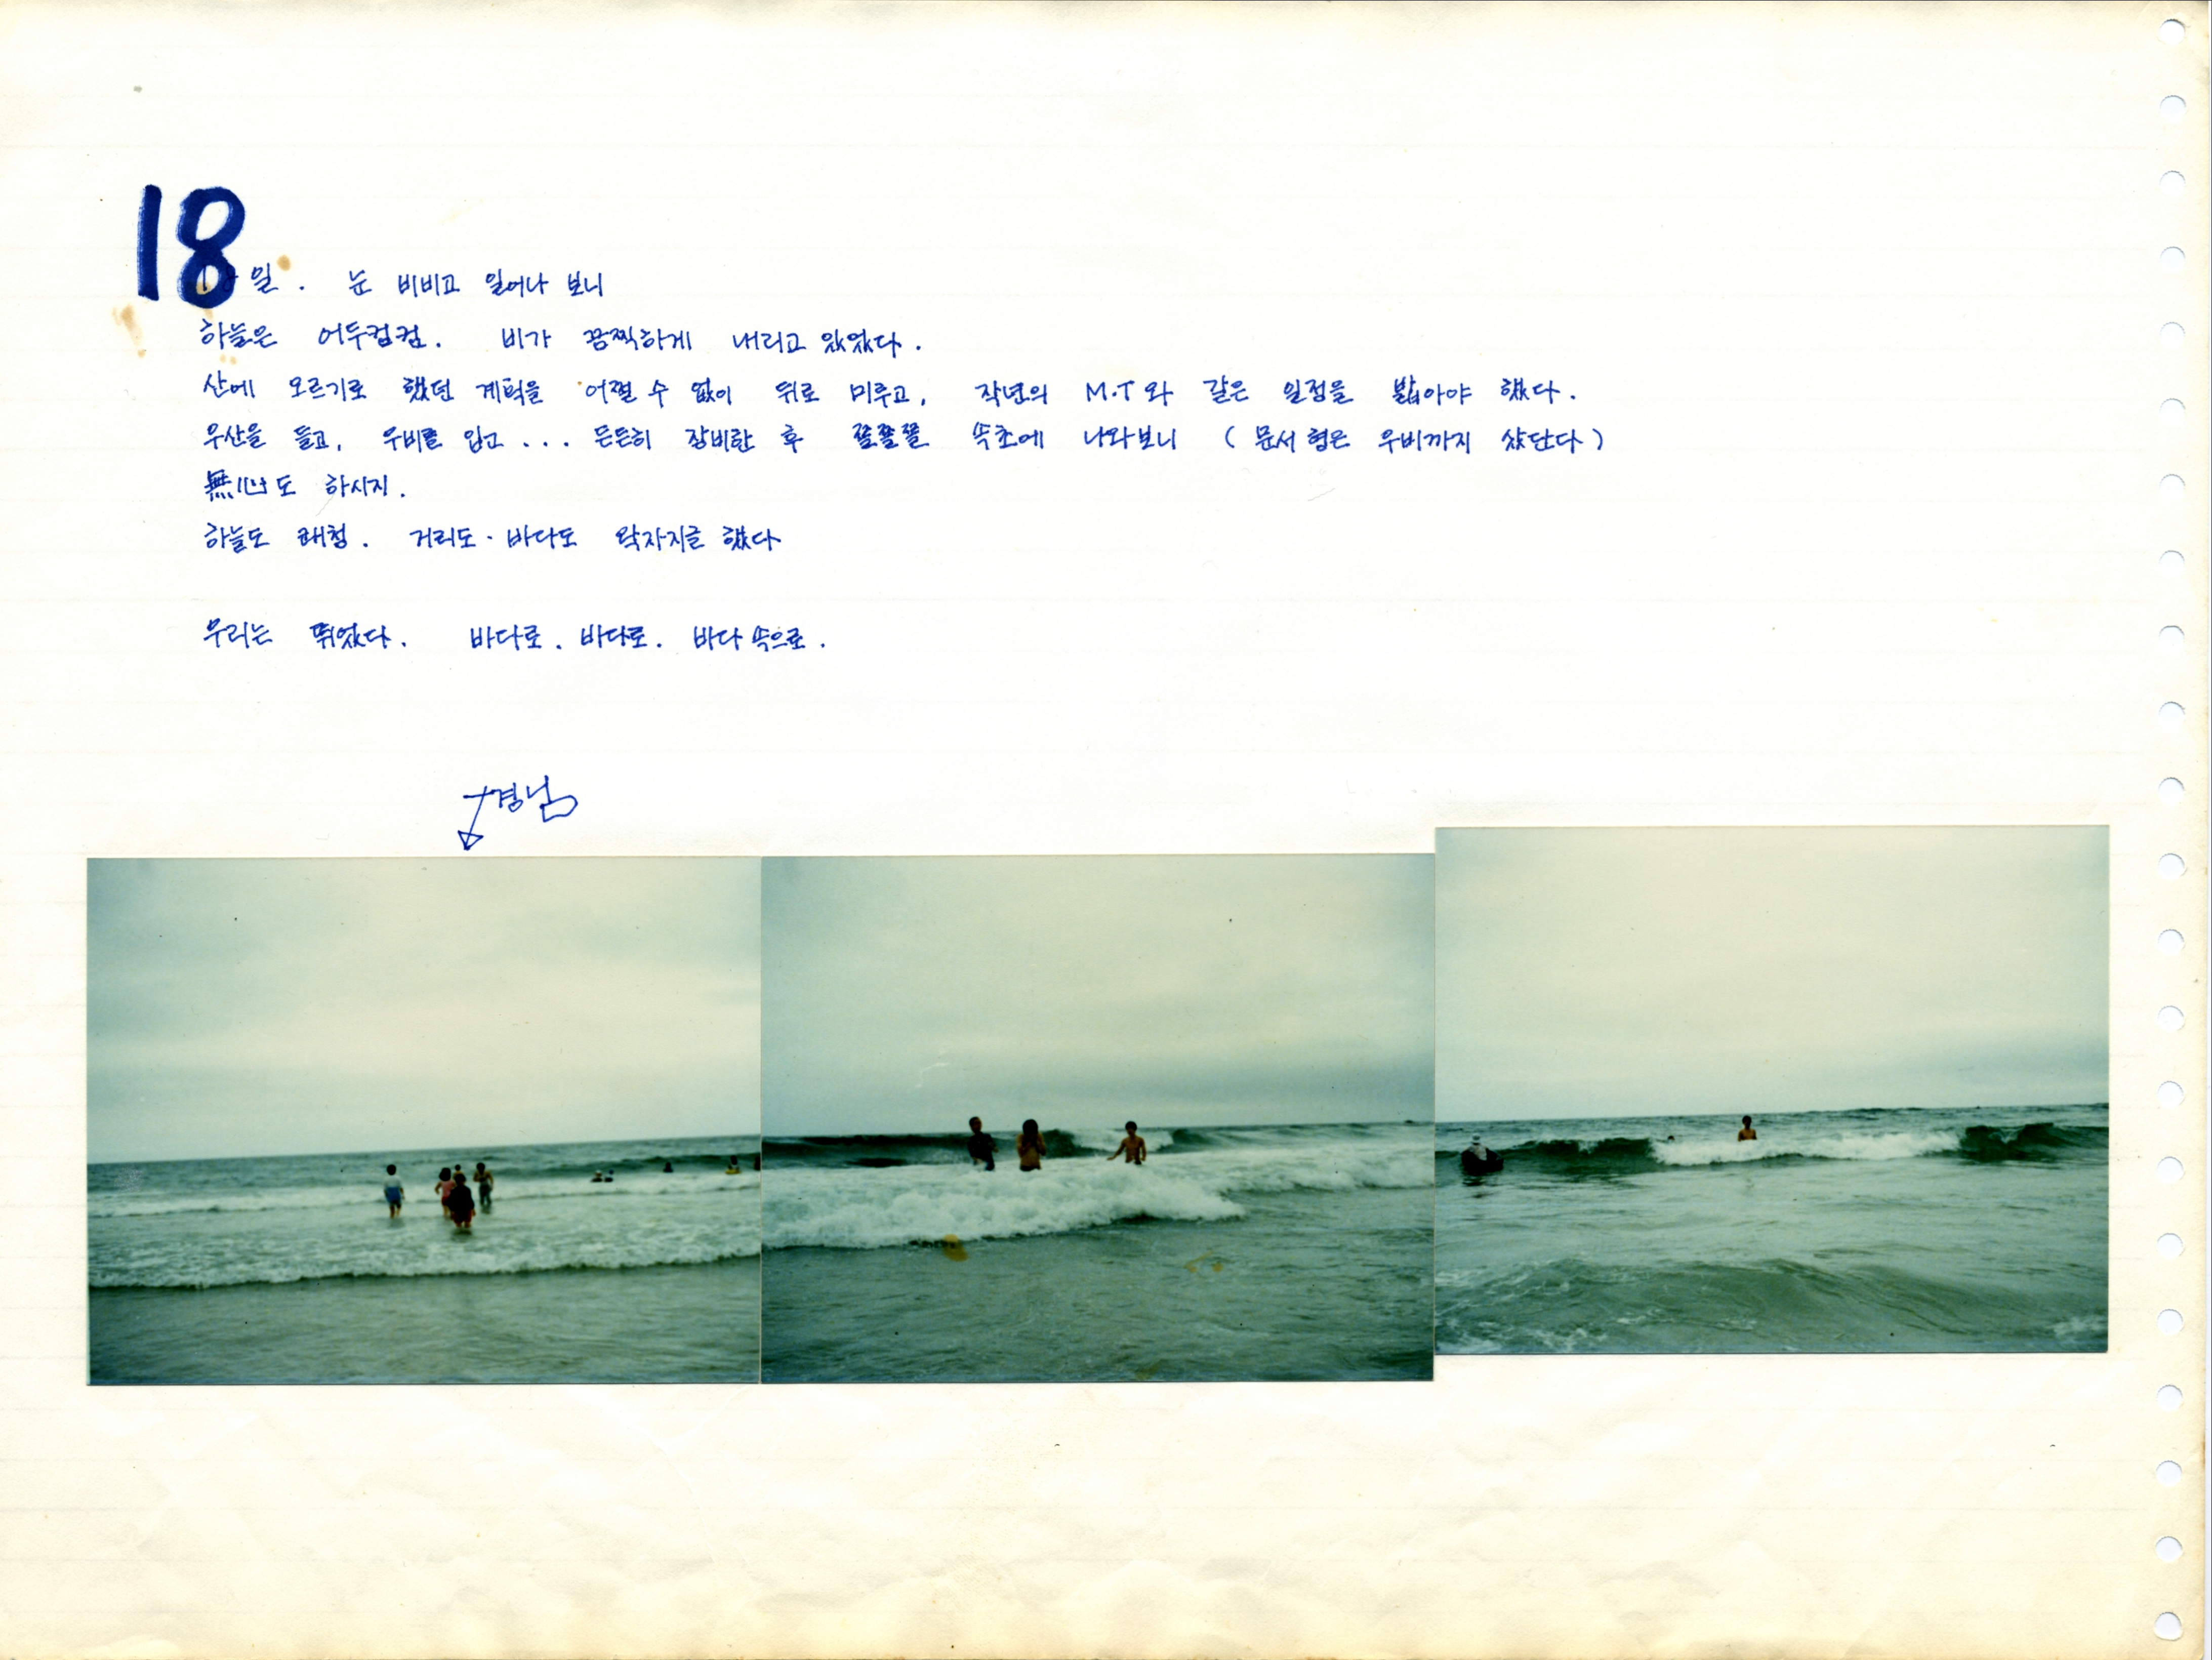 18일. 눈 비비고 일어나 보니
하늘은 어두컴컴. 비가 끔찍하게 내리고 있었다.
산에 오르기로 했던 계획을 어쩔 수 없이 뒤로 미루고, 작년의 M.T와 같은 일정을 밟아야 했다.
우산을 들고, 우비를 입고... 든든히 장비한 후 쫄쫄쫄 속초에 나와보니 (문서형은 우비까지 샀단다)
無心도 하시지.
하늘도 쾌청. 거리도·바다도 왁자지글 했다
우리는 뛰었다. 바다로. 바다로. 바다 속으로.
경님